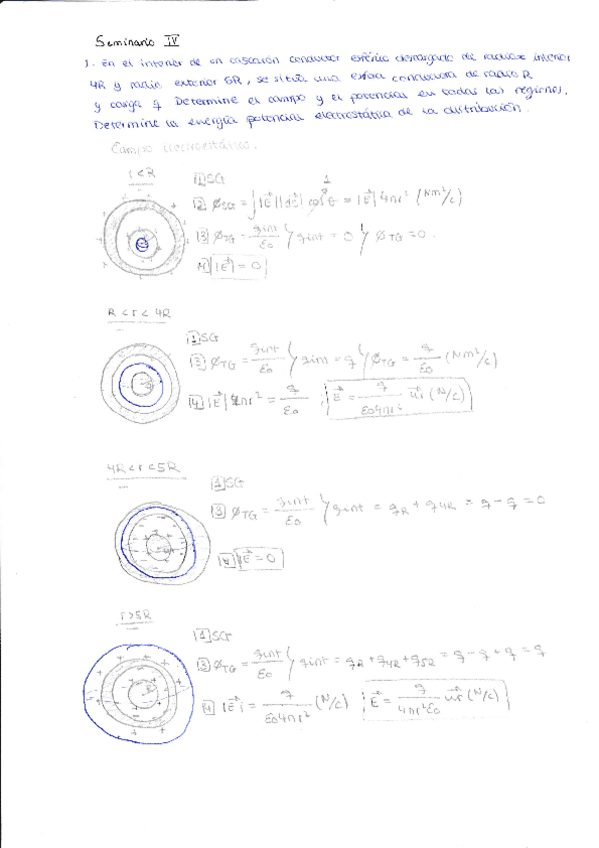 Seminario IV
1. En el interior de un cascarón conductor esférico descargado de radios interior
4R y radio exterior 5R, se sitúa una esfera conductora de radio R
y carga q. Determine el campo y el potencial en todas las regiones.
Determine la energía potencial electrostática de la distribución.
Campo electrostático.
r < R
1 SG
2 ϕSG = ∫|E⃗||ds⃗| cos θ = |E⃗| 4πr² (Nm²/C)
1
3 ϕTG = qint/ε0 } qint = 0 } ϕTG = 0.
4 |E⃗| = 0
R < r < 4R
1 SG
3 ϕTG = qint/ε0 } qint = q } ϕTG = q/ε0 (Nm²/C)
4 |E⃗| 4πr² = q/ε0 ; E⃗ = q/ε04πr² u⃗r (N/C)
4R < r < 5R
1 SG
3 ϕTG = qint/ε0 } qint = qR + q4R = q - q = 0
4 |E⃗ = 0
r > 5R
1 SG
3 ϕTG = qint/ε0 } qint = qR + q4R + q5R = q - q + q = q
4 |E⃗| = q/ε04πr² (N/C) ; E⃗ = q/4πr²ε0 u⃗r (N/C)